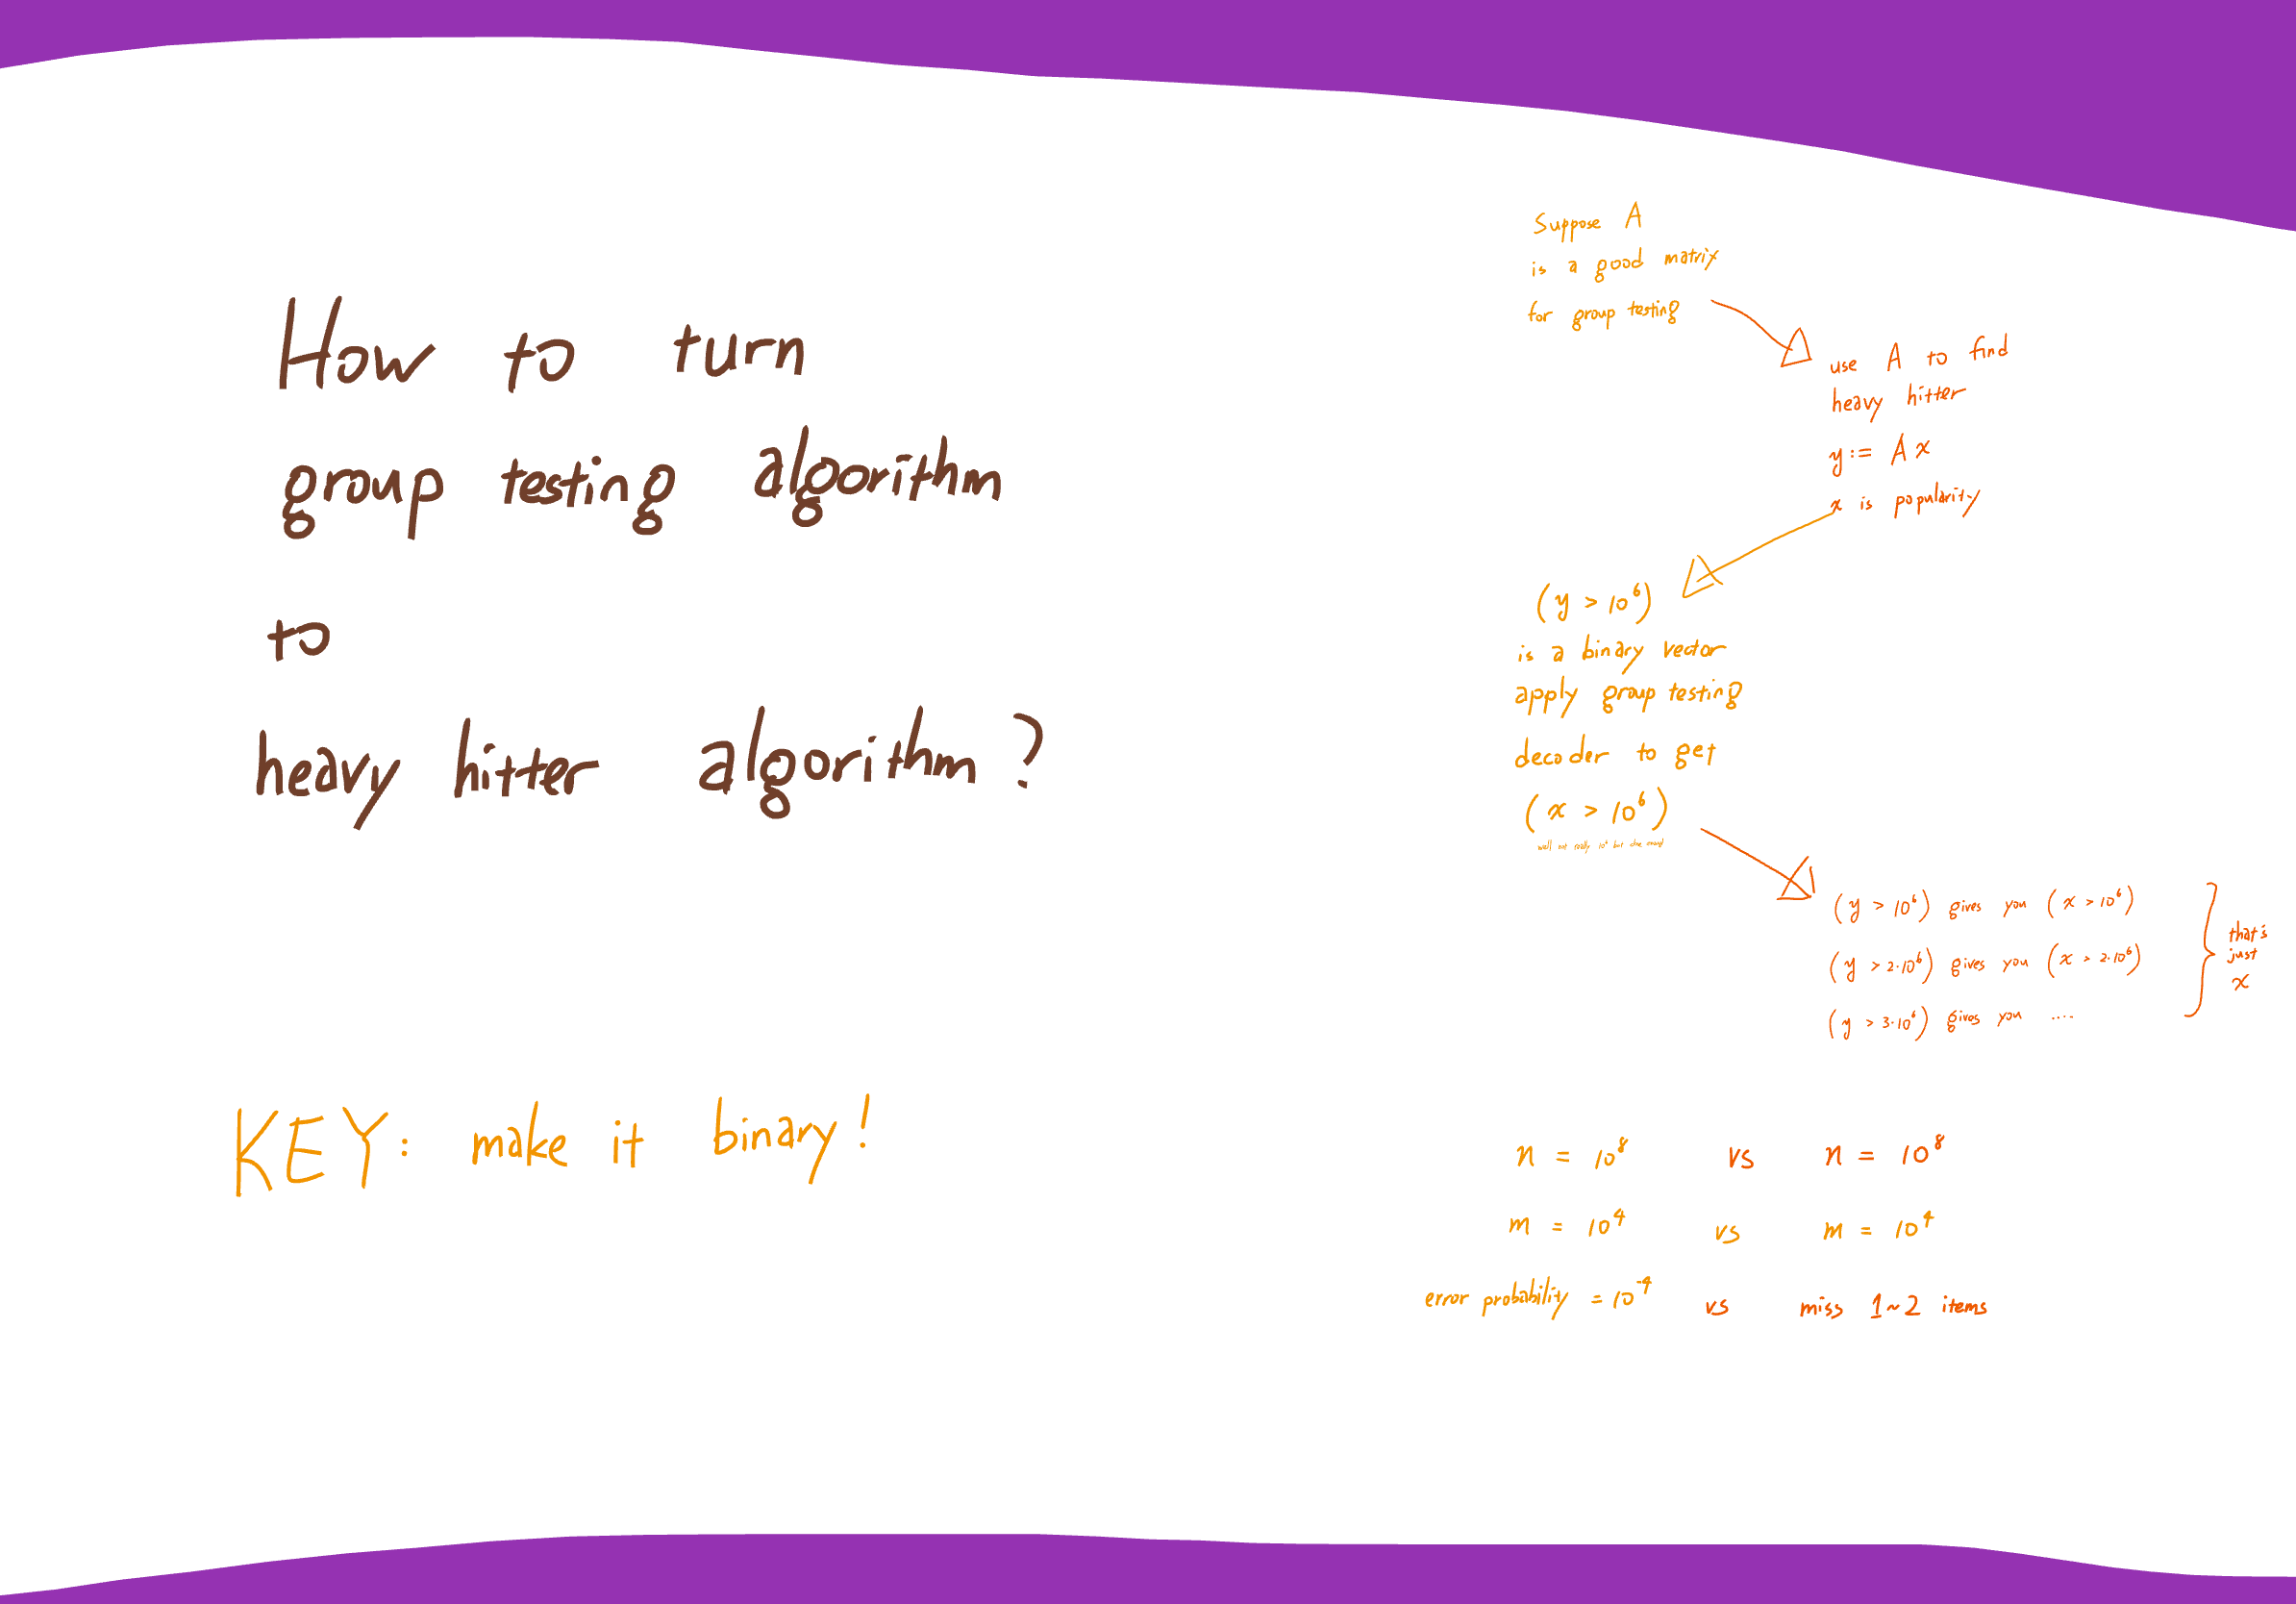 How to turn
group testing algorithm
to
heavy hitter algorithm?
KEY: make it binary!
Suppose A
is a good matrix
for group testing
use A to find
heavy hitter
y := A x
x is popularity
(y > 10⁶)
is a binary vector
apply group testing
decoder to get
(x > 10⁶)
well not really 10⁶ but close enough
(y > 10⁶) gives you (x > 10⁶)
(y > 2·10⁶) gives you (x > 2·10⁶)
(y > 3·10⁶) gives you ....
that's
just
x
n = 10⁸ vs n = 10⁸
m = 10⁴ vs m = 10⁴
error probability = 10⁻⁴ vs miss 1~2 items